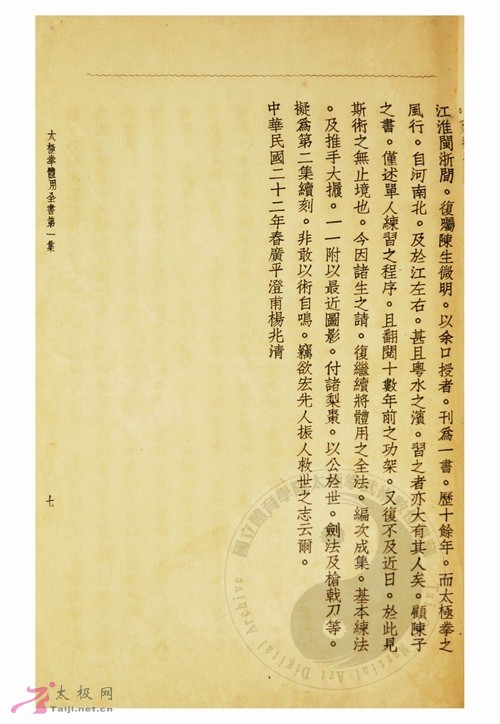 江淮閩浙間。復囑陳生微明。以余口授者。刊爲一書。歷十餘年。而太極拳之
風行。自河南北。及於江左右。甚且粵水之濱。習之者亦大有其人矣。顧陳子
之書。僅述單人練習之程序。且翻閱十數年前之功架。又復不及近日。於此見
斯術之無止境也。今因諸生之請。復繼續將體用之全法。編次成集。基本練法
。及推手大攦。一一附以最近圖影。付諸梨棗。以公於世。劍法及槍戟刀等。
擬爲第二集續刻。非敢以術自鳴。竊欲宏先人振人救世之志云爾。
中華民國二十二年春廣平澄甫楊兆清
太極拳體用全書第一集
七
國立體育學院太極
Martial Art Digital Archive
太极网
Taiji.net.cn